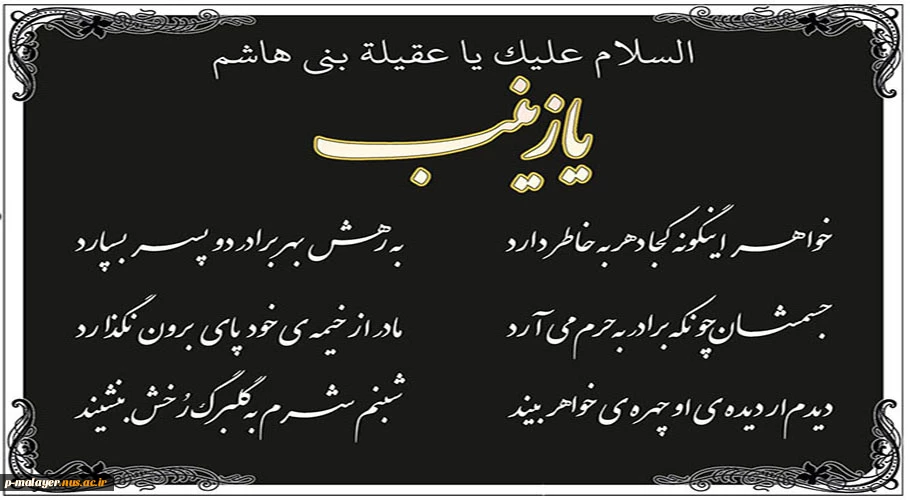 السلام عليك يا عقيلة بنى هاشم
یا زینب
خواهر اینگونه کجا دهر به خاطر دارد
به رهش بهر برادر دو پسر بسپارد
جسمشان چونکه برادر به حرم می آرد
مادر از خیمه ی خود پای برون نگذارد
دیدم ار دیده ی او چهره ی خواهر بیند
شبنم شرم به گلبرگ رُخش بنشیند
p-malayer.nus.ac.ir